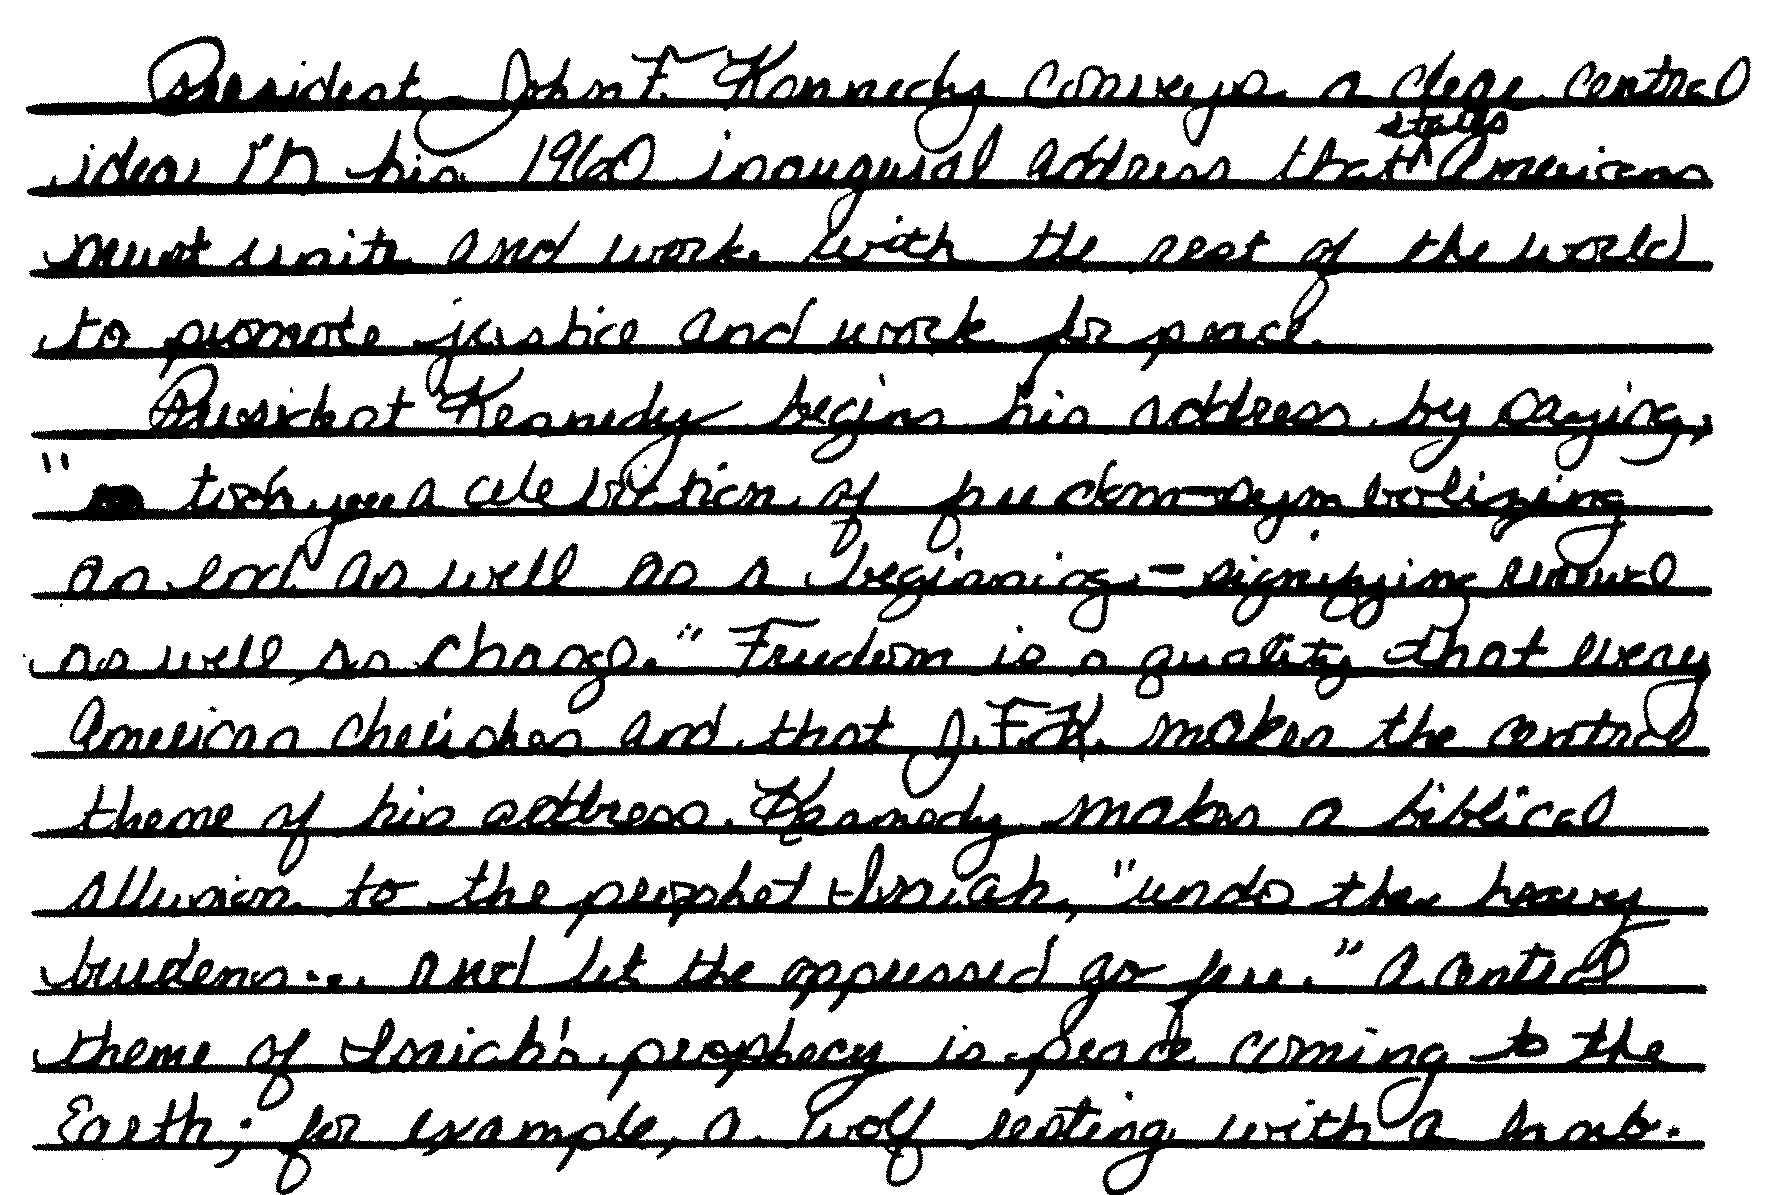 President John F. Kennedy conveys a clear central
idea in his 1960 inaugural address that states Americans
must unite and work with the rest of the world
to promote justice and work for peace.
President Kennedy begins his address by saying,
" today a celebration of freedom-symbolizing
an end as well as a beginning-signifying renewal
as well as change." Freedom is a quality that every
American cherishes and that J.F.K. makes the central
theme of his address. Kennedy makes a biblical
allusion to the prophet Isaiah, "undo the heavy
burdens... and let the oppressed go free." A central
theme of Isaiah's prophecy is peace coming to the
Earth; for example, a wolf resting with a lamb.